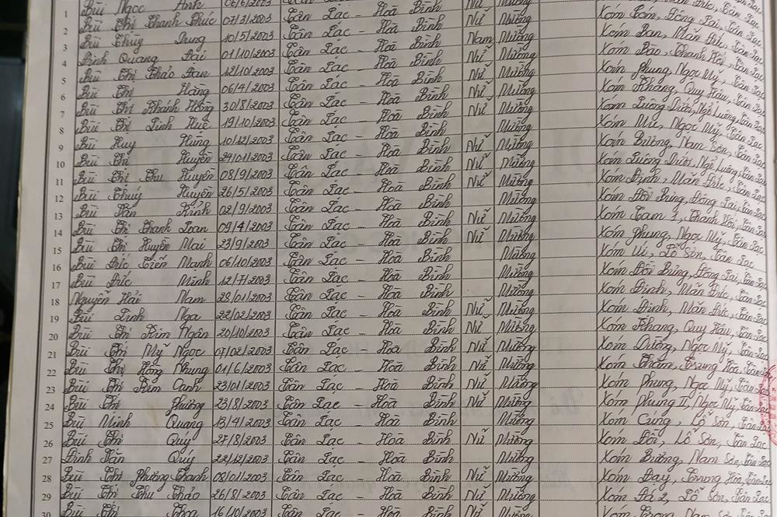 1 Bùi Ngọc Anh 06/6/2003 Tân Lạc - Hoà Bình Nữ Mường
2 Bùi Thị Thanh Trúc 07/3/2003 Tân Lạc - Hoà Bình Nữ Mường Xóm
3 Bùi Thùy Dung 10/5/2003 Tân Lạc - Hoà Bình Nữ Mường Xóm Ban, Mãn Đức, Tân Lạc
4 Đinh Quang Đại 01/10/2003 Tân Lạc - Hoà Bình Nam Mường Xóm Bào, Thanh Hối, Tân Lạc
5 Bùi Thị Thảo 12/10/2003 Tân Lạc - Hoà Bình Nữ Mường Xóm Phung, Ngọc Mỹ, Tân Lạc
6 Bùi Thị Hằng 06/4/2003 Tân Lạc - Hoà Bình Nữ Mường Xóm Khang, Quy Hậu, Tân Lạc
7 Bùi Thị Khánh Hồng 30/8/2003 Tân Lạc - Hoà Bình Nữ Mường Xóm Ngổ Luông, Tân Lạc
8 Bùi Thị Linh Huệ 19/10/2003 Tân Lạc - Hoà Bình Nữ Mường Xóm Ngọc Mỹ, Tân Lạc
9 Bùi Huy Hùng 10/12/2003 Tân Lạc - Hoà Bình Mường Xóm Bương, Nam Sơn, Tân Lạc
10 Bùi Thị Huyền 29/01/2003 Tân Lạc - Hoà Bình Nữ Mường Xóm Luông Dưới, Ngổ Luông, Tân Lạc
11 Bùi Thị Thu Huyền 08/9/2003 Tân Lạc - Hoà Bình Nữ Mường Xóm Định, Mãn Đức, Tân Lạc
12 Bùi Thúy Huyền 26/5/2003 Tân Lạc - Hoà Bình Nữ Mường Xóm Đồi Bưng, Đông Lai, Tân Lạc
13 Bùi Văn 02/9/2003 Tân Lạc - Hoà Bình Mường Xóm Tam 1, Thanh Hối, Tân Lạc
14 Bùi Thị Thanh Loan 09/4/2003 Tân Lạc - Hoà Bình Nữ Mường Xóm Phung, Ngọc Mỹ, Tân Lạc
15 Bùi Thị Huyền Mai 23/9/2003 Tân Lạc - Hoà Bình Nữ Mường Xóm Lỗ Sơn, Tân Lạc
16 Bùi Đức Tiến Mạnh 06/10/2003 Tân Lạc - Hoà Bình Mường Xóm Đồi Bưng, Đông Lai, Tân Lạc
17 Bùi Đức Minh 12/7/2003 Tân Lạc - Hoà Bình Mường Xóm Định, Mãn Đức, Tân Lạc
18 Nguyễn Hải Nam 28/01/2003 Tân Lạc - Hoà Bình Mường Xóm Định, Mãn Đức, Tân Lạc
19 Bùi Linh Nga 22/02/2003 Tân Lạc - Hoà Bình Nữ Mường Xóm Khang, Quy Hậu, Tân Lạc
20 Bùi Thị Kim Ngân 20/10/2003 Tân Lạc - Hoà Bình Nữ Mường Xóm Ngọc Mỹ, Tân Lạc
21 Bùi Thị Mỹ Ngọc 07/02/2003 Tân Lạc - Hoà Bình Nữ Mường Xóm Thăm, Trung Hoà, Tân Lạc
22 Bùi Thị Hồng Nhung 01/6/2003 Tân Lạc - Hoà Bình Nữ Mường Xóm Phung, Ngọc Mỹ, Tân Lạc
23 Bùi Thị Kim Oanh 23/01/2003 Tân Lạc - Hoà Bình Nữ Mường Xóm Phung II, Ngọc Mỹ, Tân Lạc
24 Bùi Thị Phương 23/8/2003 Tân Lạc - Hoà Bình Nữ Mường
25 Bùi Minh Quang 13/4/2003 Tân Lạc - Hoà Bình Mường Xóm Cúng, Lỗ Sơn, Tân Lạc
26 Bùi Thị Quý 27/8/2003 Tân Lạc - Hoà Bình Nữ Mường Xóm Đồi, Lỗ Sơn, Tân Lạc
27 Đinh Văn Quý 22/12/2003 Tân Lạc - Hoà Bình Mường Xóm Bương, Nam Sơn, Tân Lạc
28 Bùi Thị Phương Thanh 08/01/2003 Tân Lạc - Hoà Bình Nữ Mường Xóm Đay, Trung Hoà, Tân Lạc
29 Bùi Thị Thu Thảo 26/8/2003 Tân Lạc - Hoà Bình Nữ Mường Xóm Đá 2, Lỗ Sơn, Tân Lạc
30 Bùi Thị Thoa 16/10/2003 Tân Lạc - Hoà Bình Nữ Mường Xóm Nam Sơn, Tân Lạc